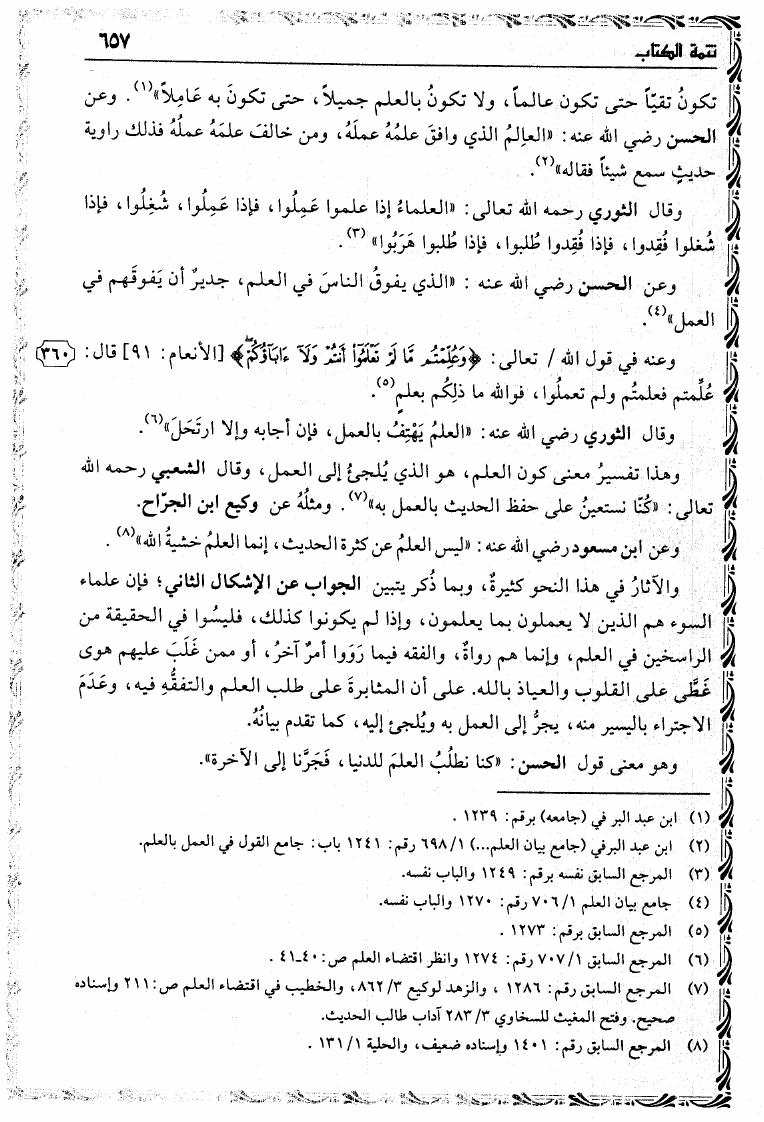 تتمة الكتاب
٦٥٧
تكونُ تقيّاً حتى تكون عالماً، ولا تكونُ بالعلم جميلاً، حتى تكونَ به عَامِلاً»(١). وعن
الحسن رضي الله عنه: «العالِمُ الذي وافقَ علمُهُ عملَهُ، ومن خالفَ علمَهُ عملُهُ فذلك راوية
حديثٍ سمع شيئاً فقاله»(٢).
وقال الثوري رحمه الله تعالى: «العلماءُ إذا علموا عَمِلُوا، فإذا عَمِلُوا، شُغِلُوا، فإذا
شُغلوا فُقِدوا، فإذا فُقِدوا طُلبوا، فإذا طُلبوا هَرَبُوا»(٣).
وعن الحسن رضي الله عنه : «الذي يفوقُ الناسَ في العلم، جديرٌ أن يَفوقَهم في
العمل»(٤).
وعنه في قول الله / تعالى: ﴿وَعُلِّمْتُم مَّا لَمْ تَعْلَمُوٓاْ أَنتُمْ وَلَآ ءَابَآؤُكُمْ﴾ [الأنعام: ٩١] قال: ٣٦٠
عُلِّمتم فعلمتُم ولم تعملُوا، فوالله ما ذلِكُم بعلمٍ(٥).
وقال الثوري رضي الله عنه: «العلمُ يَهْتِفُ بالعمل، فإن أجابه وإلا ارتَحَلَ»(٦).
وهذا تفسيرُ معنى كون العلم، هو الذي يُلجئُ إلى العمل، وقال الشعبي رحمه الله
تعالى: «كُنّا نستعينُ على حفظ الحديث بالعمل به»(٧). ومثلُهُ عن وكيع ابن الجرّاح.
وعن ابن مسعود رضي الله عنه: «ليس العلمُ عن كثرة الحديث، إنما العلمُ خشيةُ الله»(٨).
والآثارُ في هذا النحو كثيرةٌ، وبما ذُكر يتبين الجواب عن الإشكال الثاني؛ فإن علماء
السوء هم الذين لا يعملون بما يعلمون، وإذا لم يكونوا كذلك، فليسُوا في الحقيقة من
الراسخين في العلم، وإنما هم رواةٌ، والفقه فيما رَوَوا أمرٌ آخرُ، أو ممن غَلَبَ عليهم هوى
غَطَّى على القلوب والعياذ بالله. على أن المثابرةَ على طلب العلم والتفقُّهِ فيه، وعَدَمَ
الاجتراء باليسير منه، يجرُّ إلى العمل به ويُلجئ إليه، كما تقدم بيانُهُ.
وهو معنى قول الحسن: «كنا نطلُبُ العلمَ للدنيا، فَجَرَّنا إلى الآخرة».
(١) ابن عبد البر في (جامعه) برقم: ١٢٣٩ .
(٢) ابن عبد البرفي (جامع بيان العلم...) ٦٩٨/١ رقم: ١٢٤١ باب: جامع القول في العمل بالعلم.
(٣) المرجع السابق نفسه برقم: ١٢٤٩ والباب نفسه.
(٤) جامع بيان العلم ٧٠٦/١ رقم: ١٢٧٠ والباب نفسه.
(٥) المرجع السابق برقم: ١٢٧٣ .
(٦) المرجع السابق ٧٠٧/١ رقم: ١٢٧٤ وانظر اقتضاء العلم ص: ٤٠ـ٤١ .
(٧) المرجع السابق رقم: ١٢٨٦ ، والزهد لوكيع ٨٦٢/٣، والخطيب في اقتضاء العلم ص: ٢١١ وإسناده
صحيح. وفتح المغيث للسخاوي ٢٨٣/٣ آداب طالب الحديث.
(٨) المرجع السابق رقم: ١٤٠١ وإسناده ضعيف، والحلية ١٣١/١ .